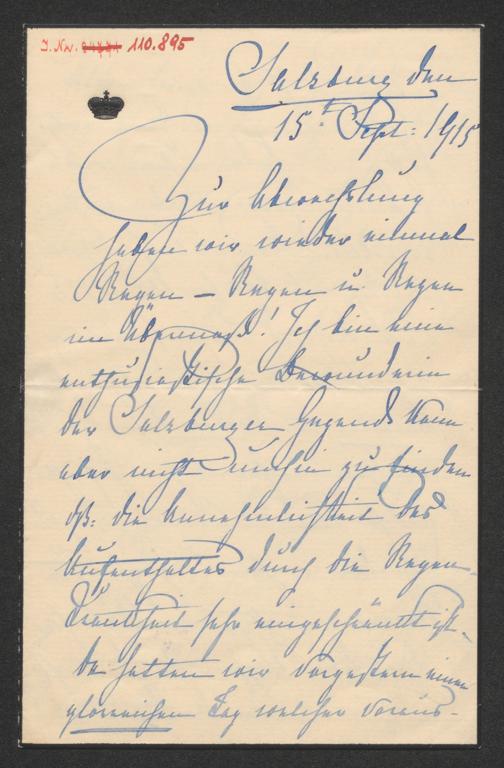 I. Nr. 110.895
Salzburg den
15t Sept: 1915
Zur Abwechslung
haben wir wieder einmal
Regen – Regen u. Regen
im Übermaß! Ich bin eine
enthusiastische Bewunderin
der Salzburger Gegend kann
aber nicht umhin zu finden
dß: die Annehmlichkeit des
Aufenthaltes durch die Regen-
krankheit sehr eingeschränkt ist.
Da hatten wir vorgestern einen
glorreichen Tag welcher voraus-